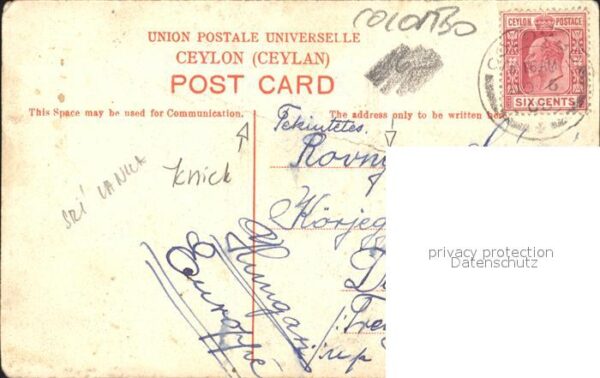 COLOMBO
UNION POSTALE UNIVERSELLE
CEYLON (CEYLAN)
POST CARD
CEYLON POSTAGE
SIX CENTS
This Space may be used for Communication.
The address only to be written her
Tekintetes
Rovn
knick
SRI LANKA
Körjeg
privacy protection
Datenschutz
Hungar
Europe